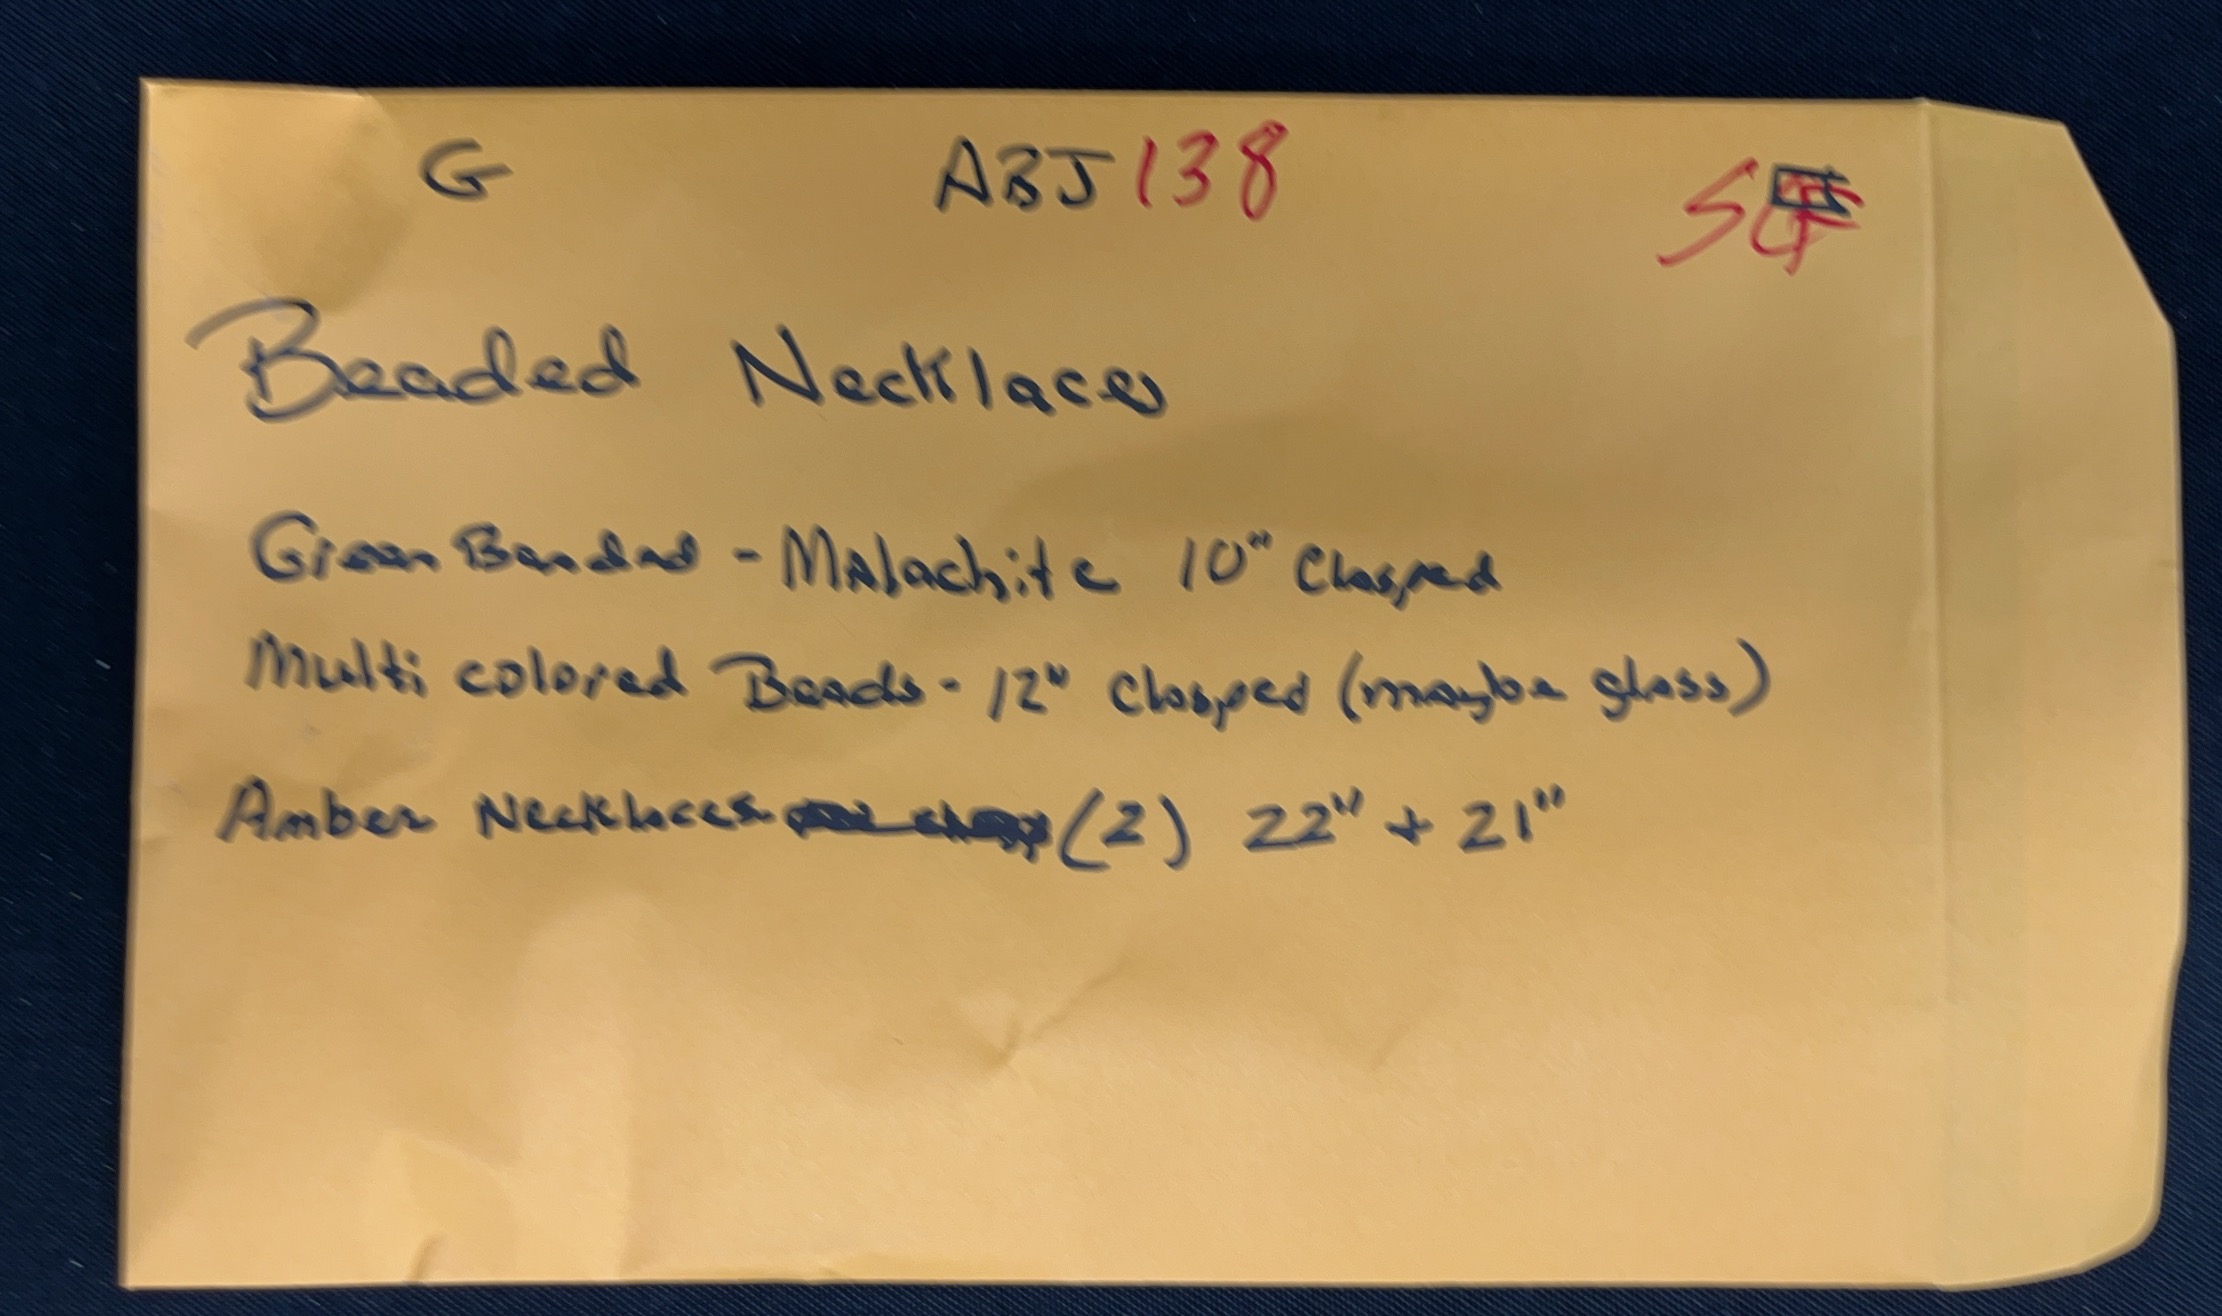 G ABJ 138
Beaded Necklaces
Green Banded - Malachite 10" Clasped
Multi colored Beads - 12" Clasped (maybe glass)
Amber Necklaces (2) 22" + 21"